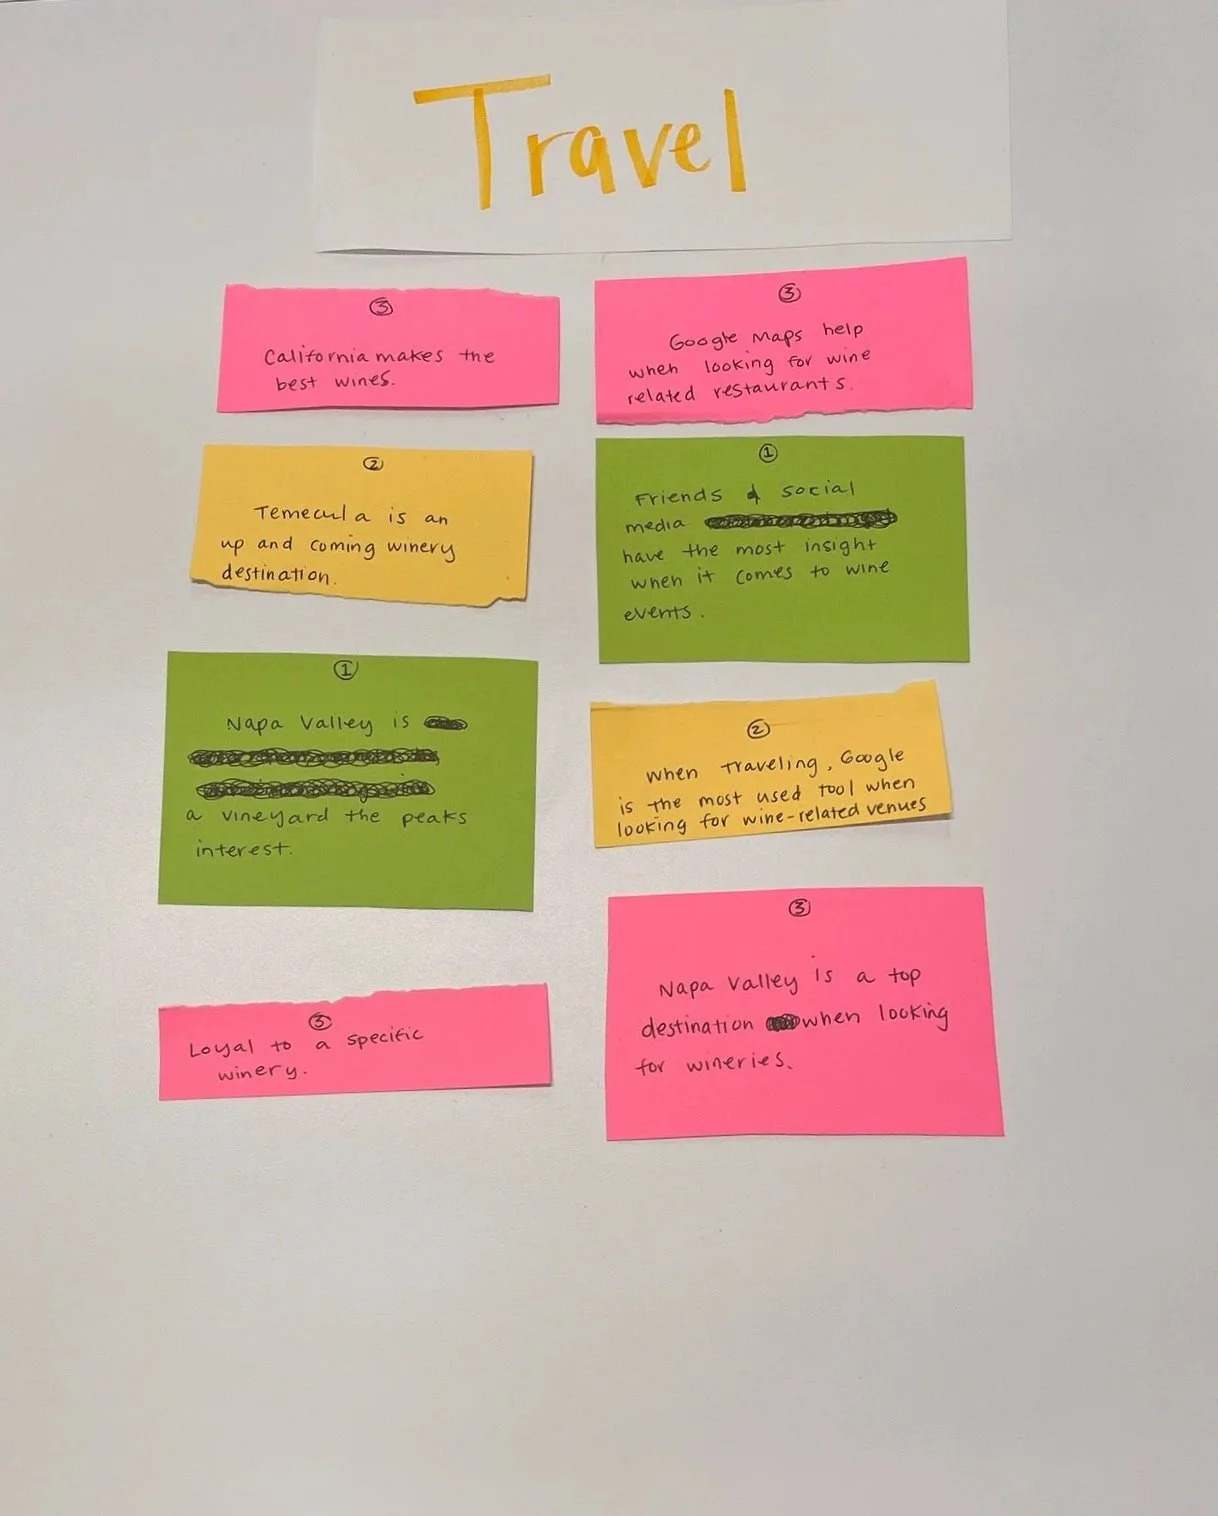 Travel
③
California makes the
best wines.
③
Google Maps help
when looking for wine
related restaurants.
②
Temecula is an
up and coming winery
destination.
①
Friends & social
media
have the most insight
when it comes to wine
events.
①
Napa Valley is
a vineyard the peaks
interest.
②
When traveling, Google
is the most used tool when
looking for wine-related venues
③
Loyal to a specific
winery.
③
Napa Valley is a top
destination when looking
for wineries.